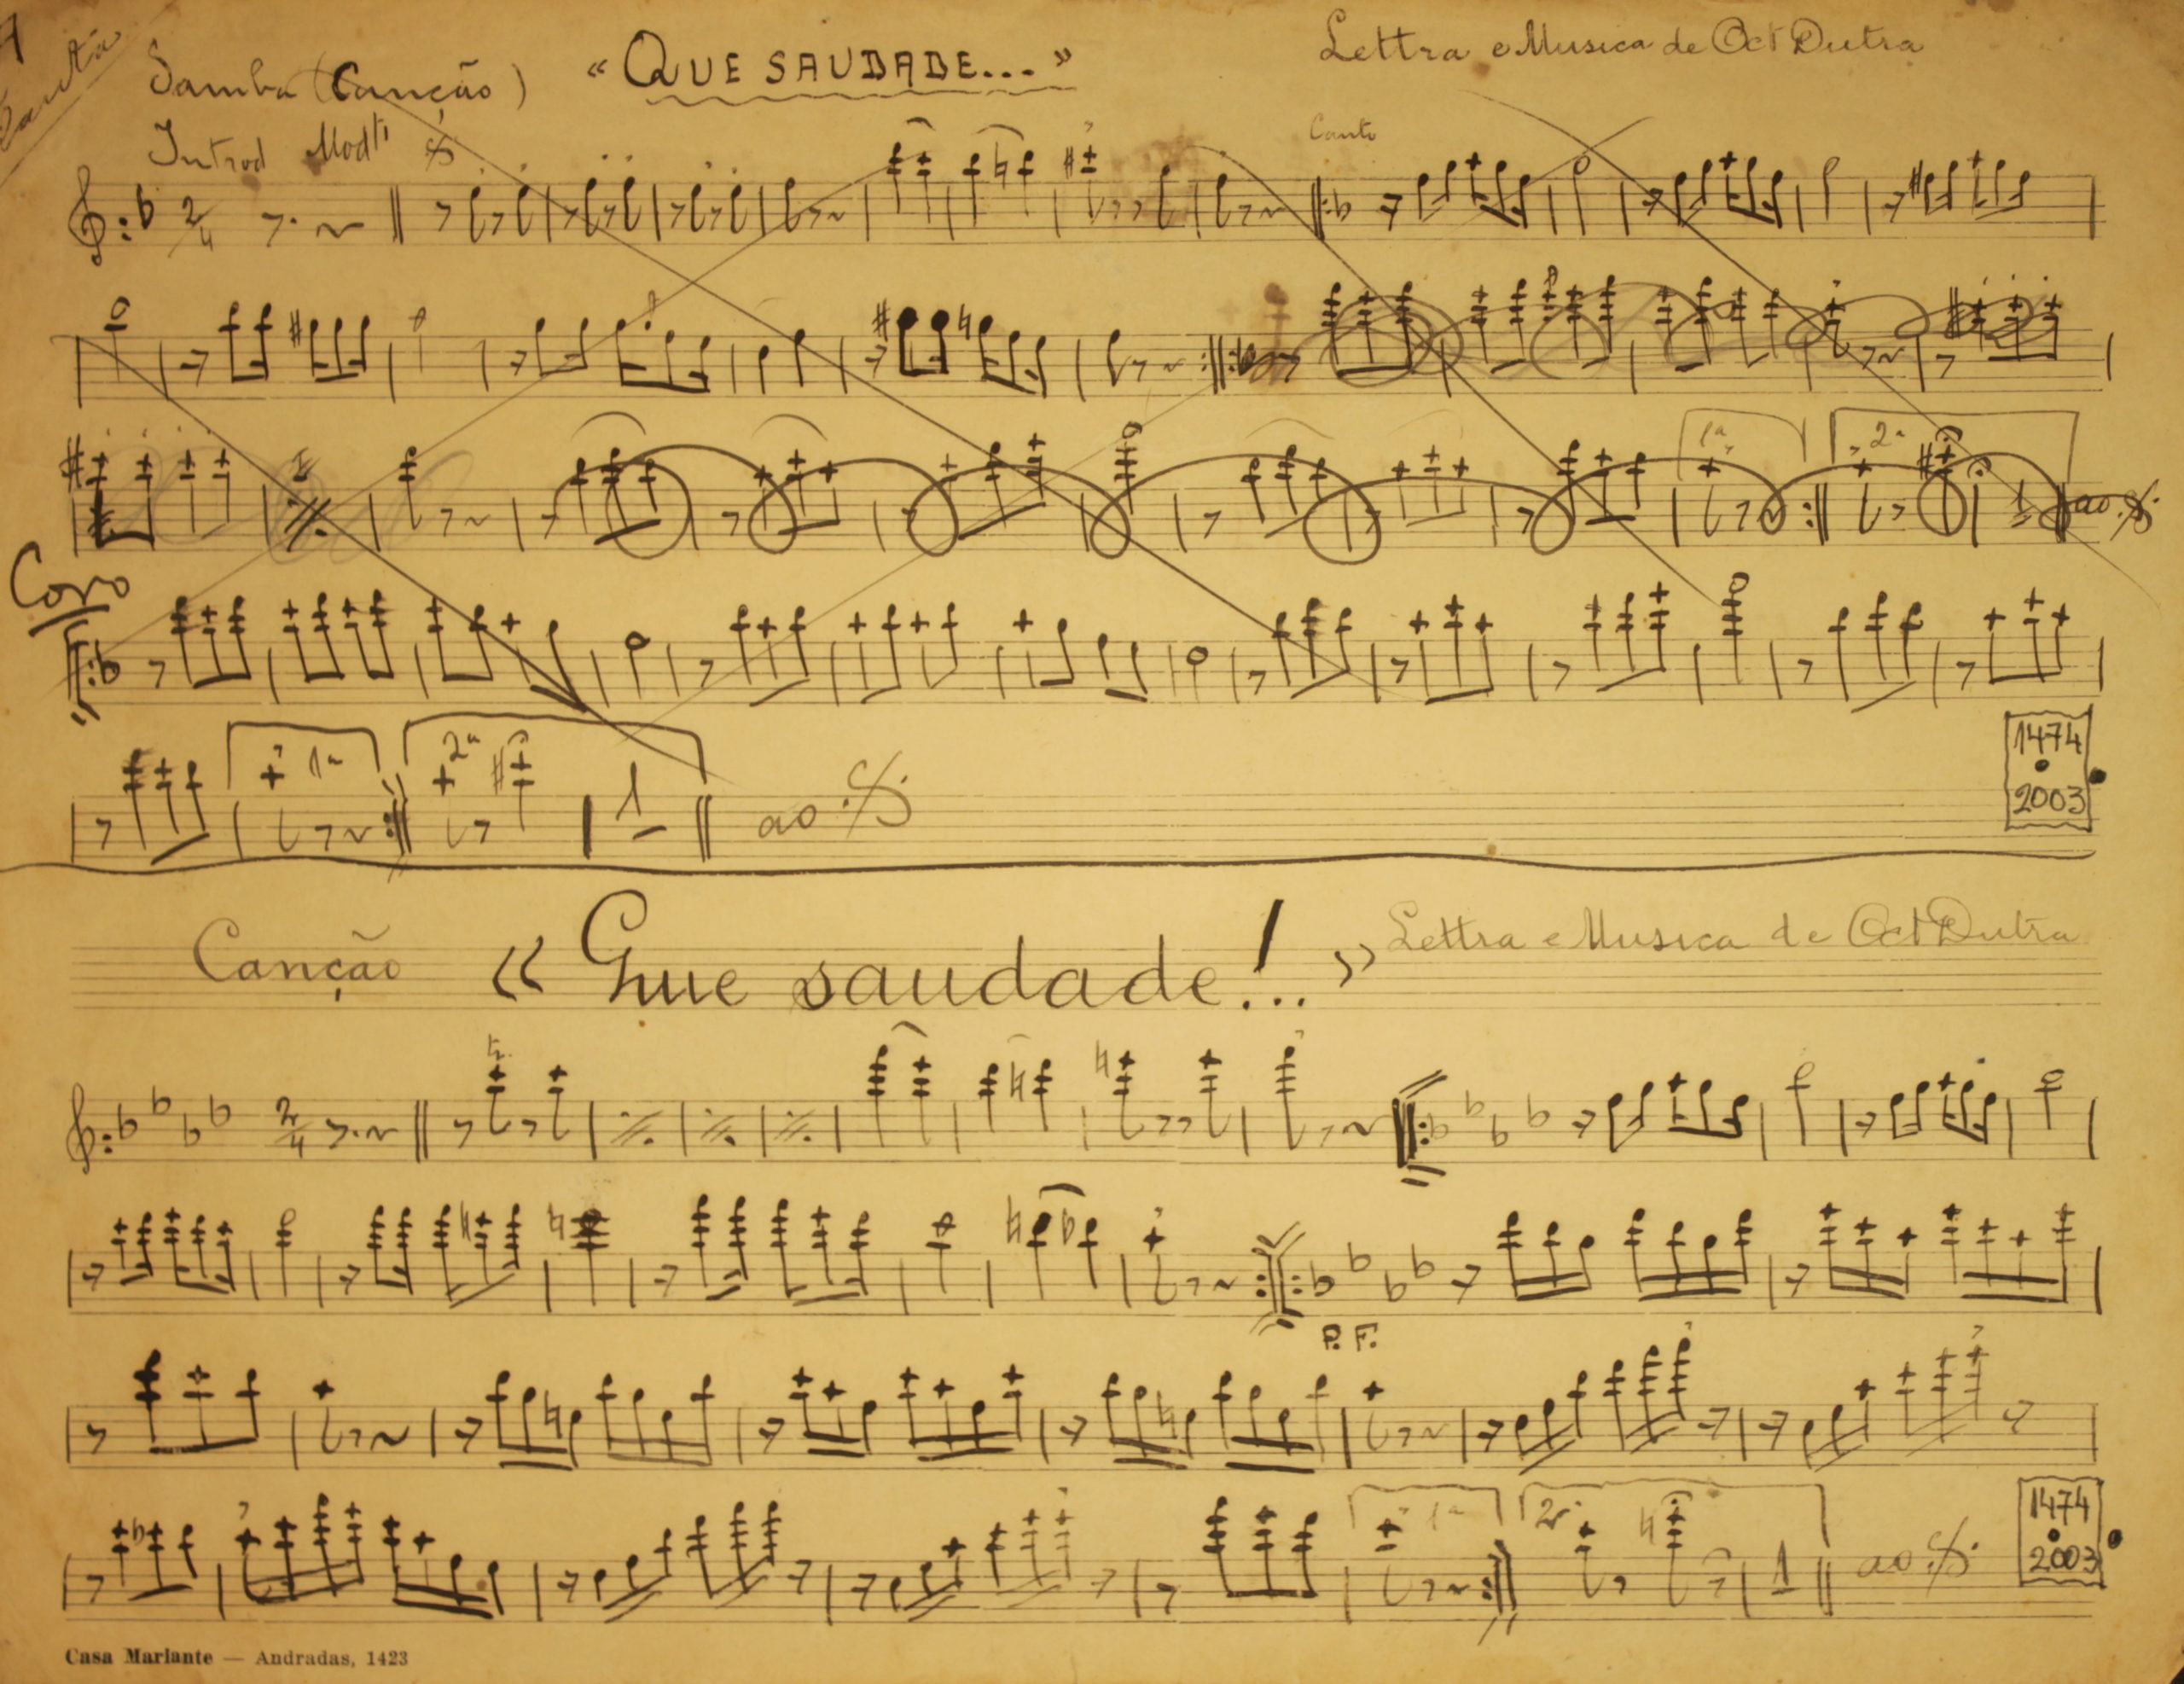 Flauta
Samba (Canção) « QUE SAUDADE... » Lettra e Musica de Oct Dutra
Introd Modtº
Canto
2/4
1ª 2ª
ao
Coro
1ª 2ª
1
ao
1474
2003
Canção « Que saudade!... » Lettra e Musica de Oct Dutra
2/4
P. F.
1ª 2ª
1
ao
1474
2003
Casa Mariante — Andradas, 1423